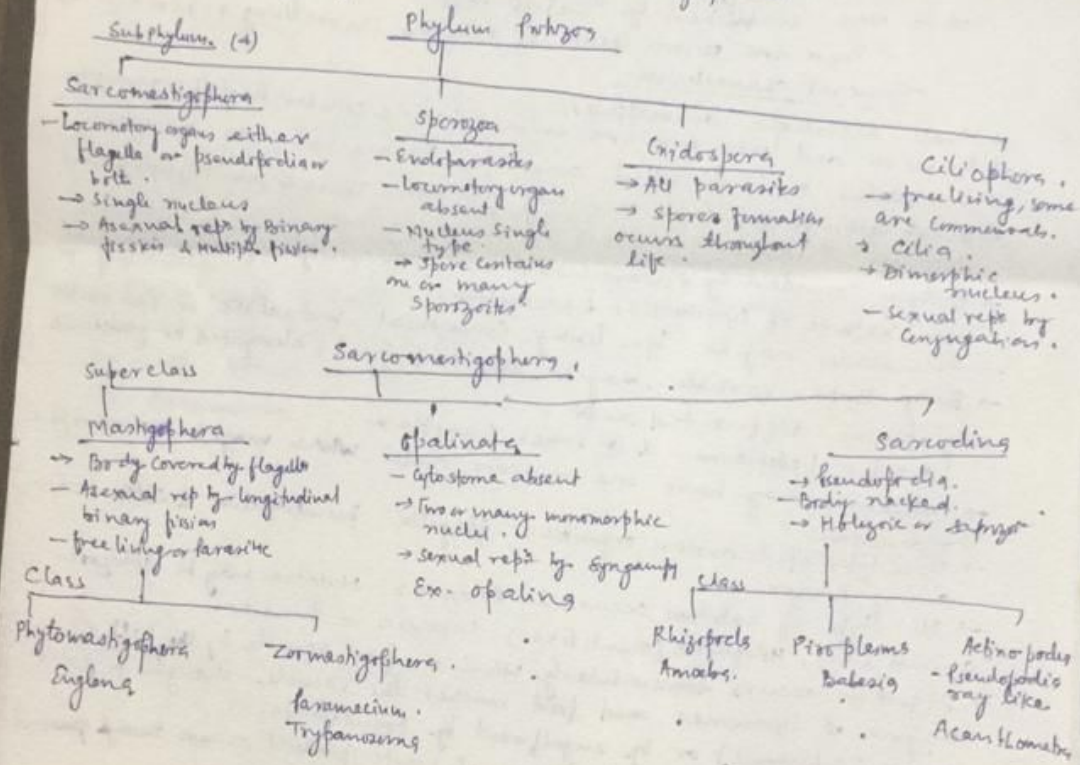 Phylum Protozoa
Subphylum. (4)
Sarcomastigophora
- Locomotory organs either
flagella or pseudopodia or
both.
→ Single nucleus
→ Asexual repn by Binary
fission & Multiple fission.
Sporozoa
- Endoparasites
- Locomotory organs
absent
- Nucleus Single
type.
→ Spore contains
one or many
Sporozoites
Cnidospora
→ All parasites
→ Spores formation
occurs throughout
life.
Ciliophora.
→ free living, some
are commensals.
→ Cilia.
→ Dimorphic
nucleus.
- Sexual repn by
Conjugation.
Sarcomastigophora.
Superclass
Mastigophora
→ Body covered by flagella
- Asexual rep by longitudinal
binary fission
- free living or parasitic
Class
Phytomastigophora
Euglena
Zoomastigophora.
Paramecium.
Trypanosoma
Opalinata
- Cytostome absent
→ Two or many monomorphic
nuclei.
→ Sexual repn by Syngamy
Ex. Opalina
Sarcodina
→ Pseudopodia.
- Body nacked.
→ Holozoic or
Class
Rhizopoda
Amoeba.
Piroplasma
Babesia
Actinopodia
- Pseudopodia
ray like
Acanthometra